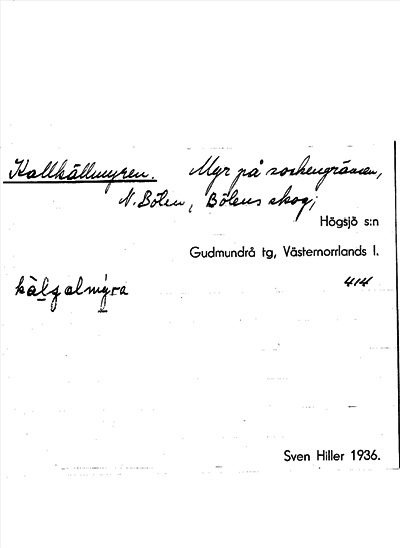 Kallkällmyren. Myr på sockengränsen,
N. Bölen, Bölens skog;
Högsjö s:n
Gudmundrå tg, Västernorrlands l.
414
Sven Hiller 1936.